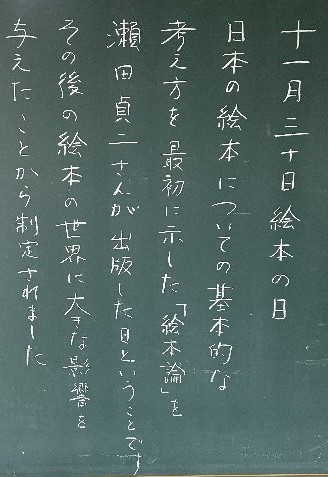 十一月三十日絵本の日
日本の絵本についての基本的な
考え方を最初に示した「絵本論」を
瀬田貞二さんが出版した日ということです
その後の絵本の世界に大きな影響を
与えたことから制定されました